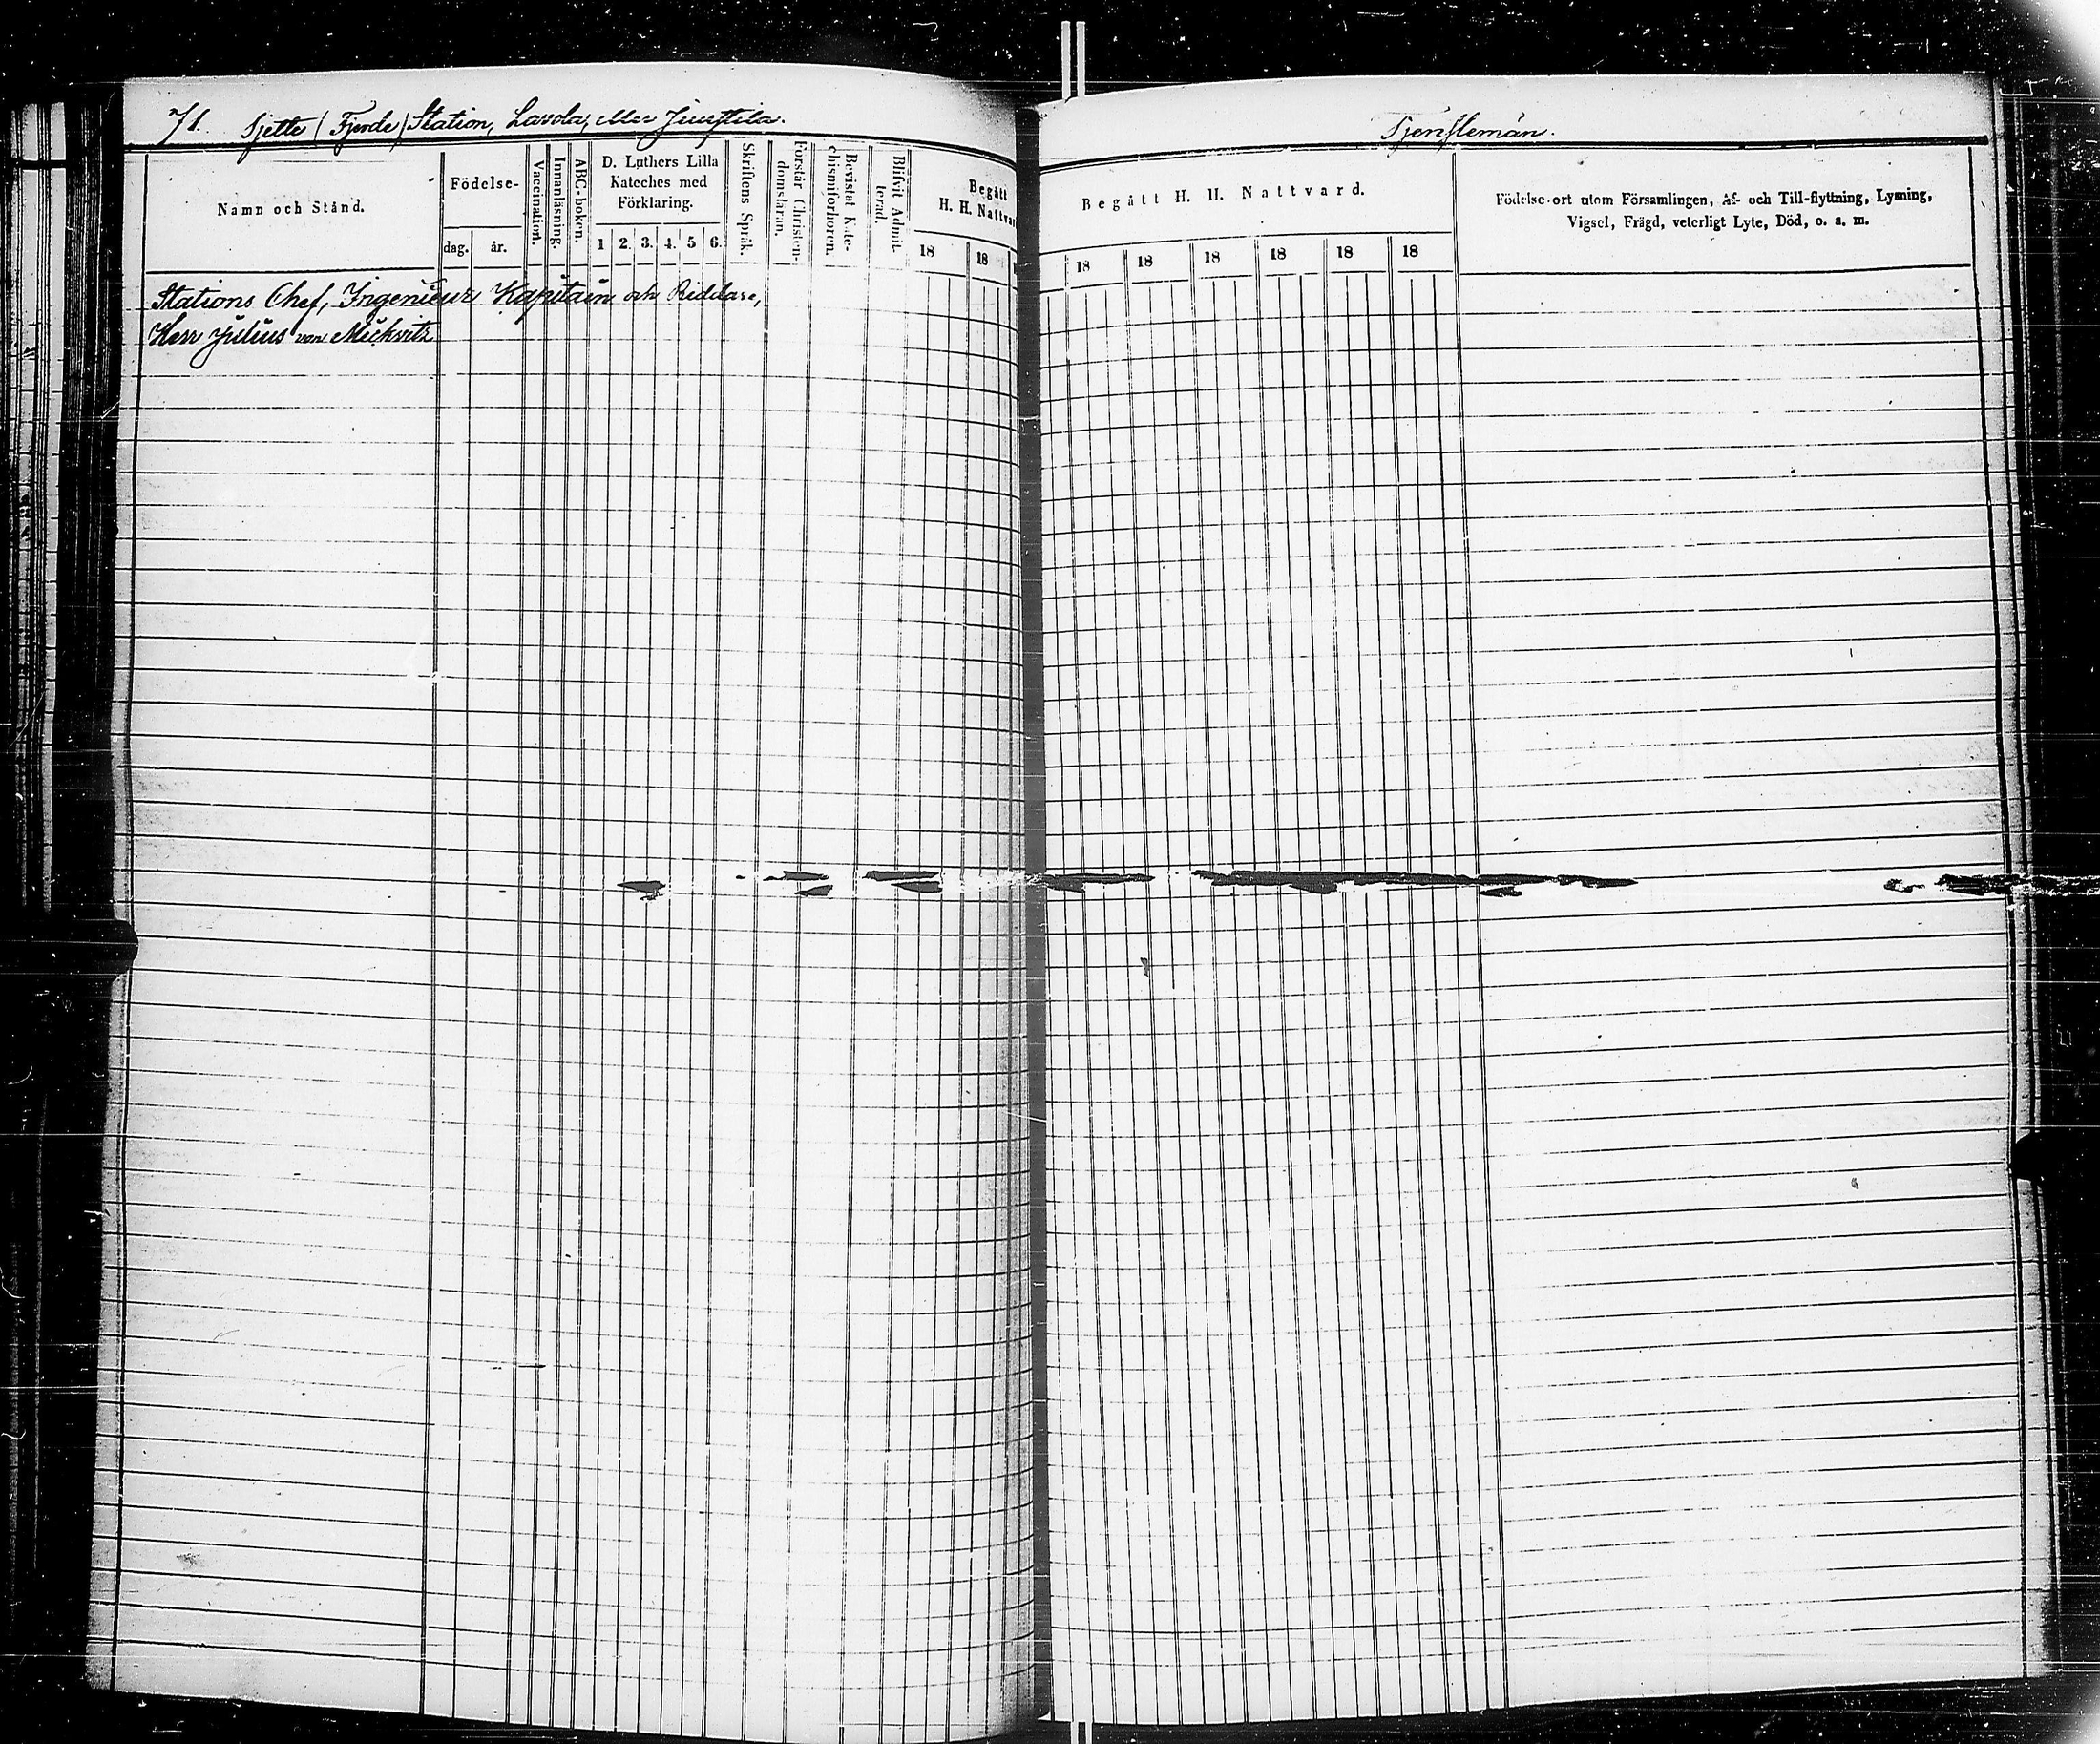 71. Sjette (Fjerde) Station, Lavola, eller Juustila.
Namn och Stånd.
Födelse-
dag.
år.
Vaccination.
Innanläsning.
ABC-boken.
D. Luthers Lilla
Kateches med
Förklaring.
1 2. 3. 4. 5 6.
Skriftens Språk.
Förstår Christen-
domsläran.
Bevistat Kate-
chismiförhören.
Blifvit Admit-
terad.
Begått
H. H. Nattvard
18 18
Stations Chef, Ingenieur Kapitain och Riddare,
Herr Julius von Mickwitz
Tjenstemän.
Begått H. H. Nattvard.
18 18 18 18 18 18
Födelse-ort utom Församlingen, Af- och Till-flyttning, Lysning,
Vigsel, Frägd, veterligt Lyte, Död, o. s. m.